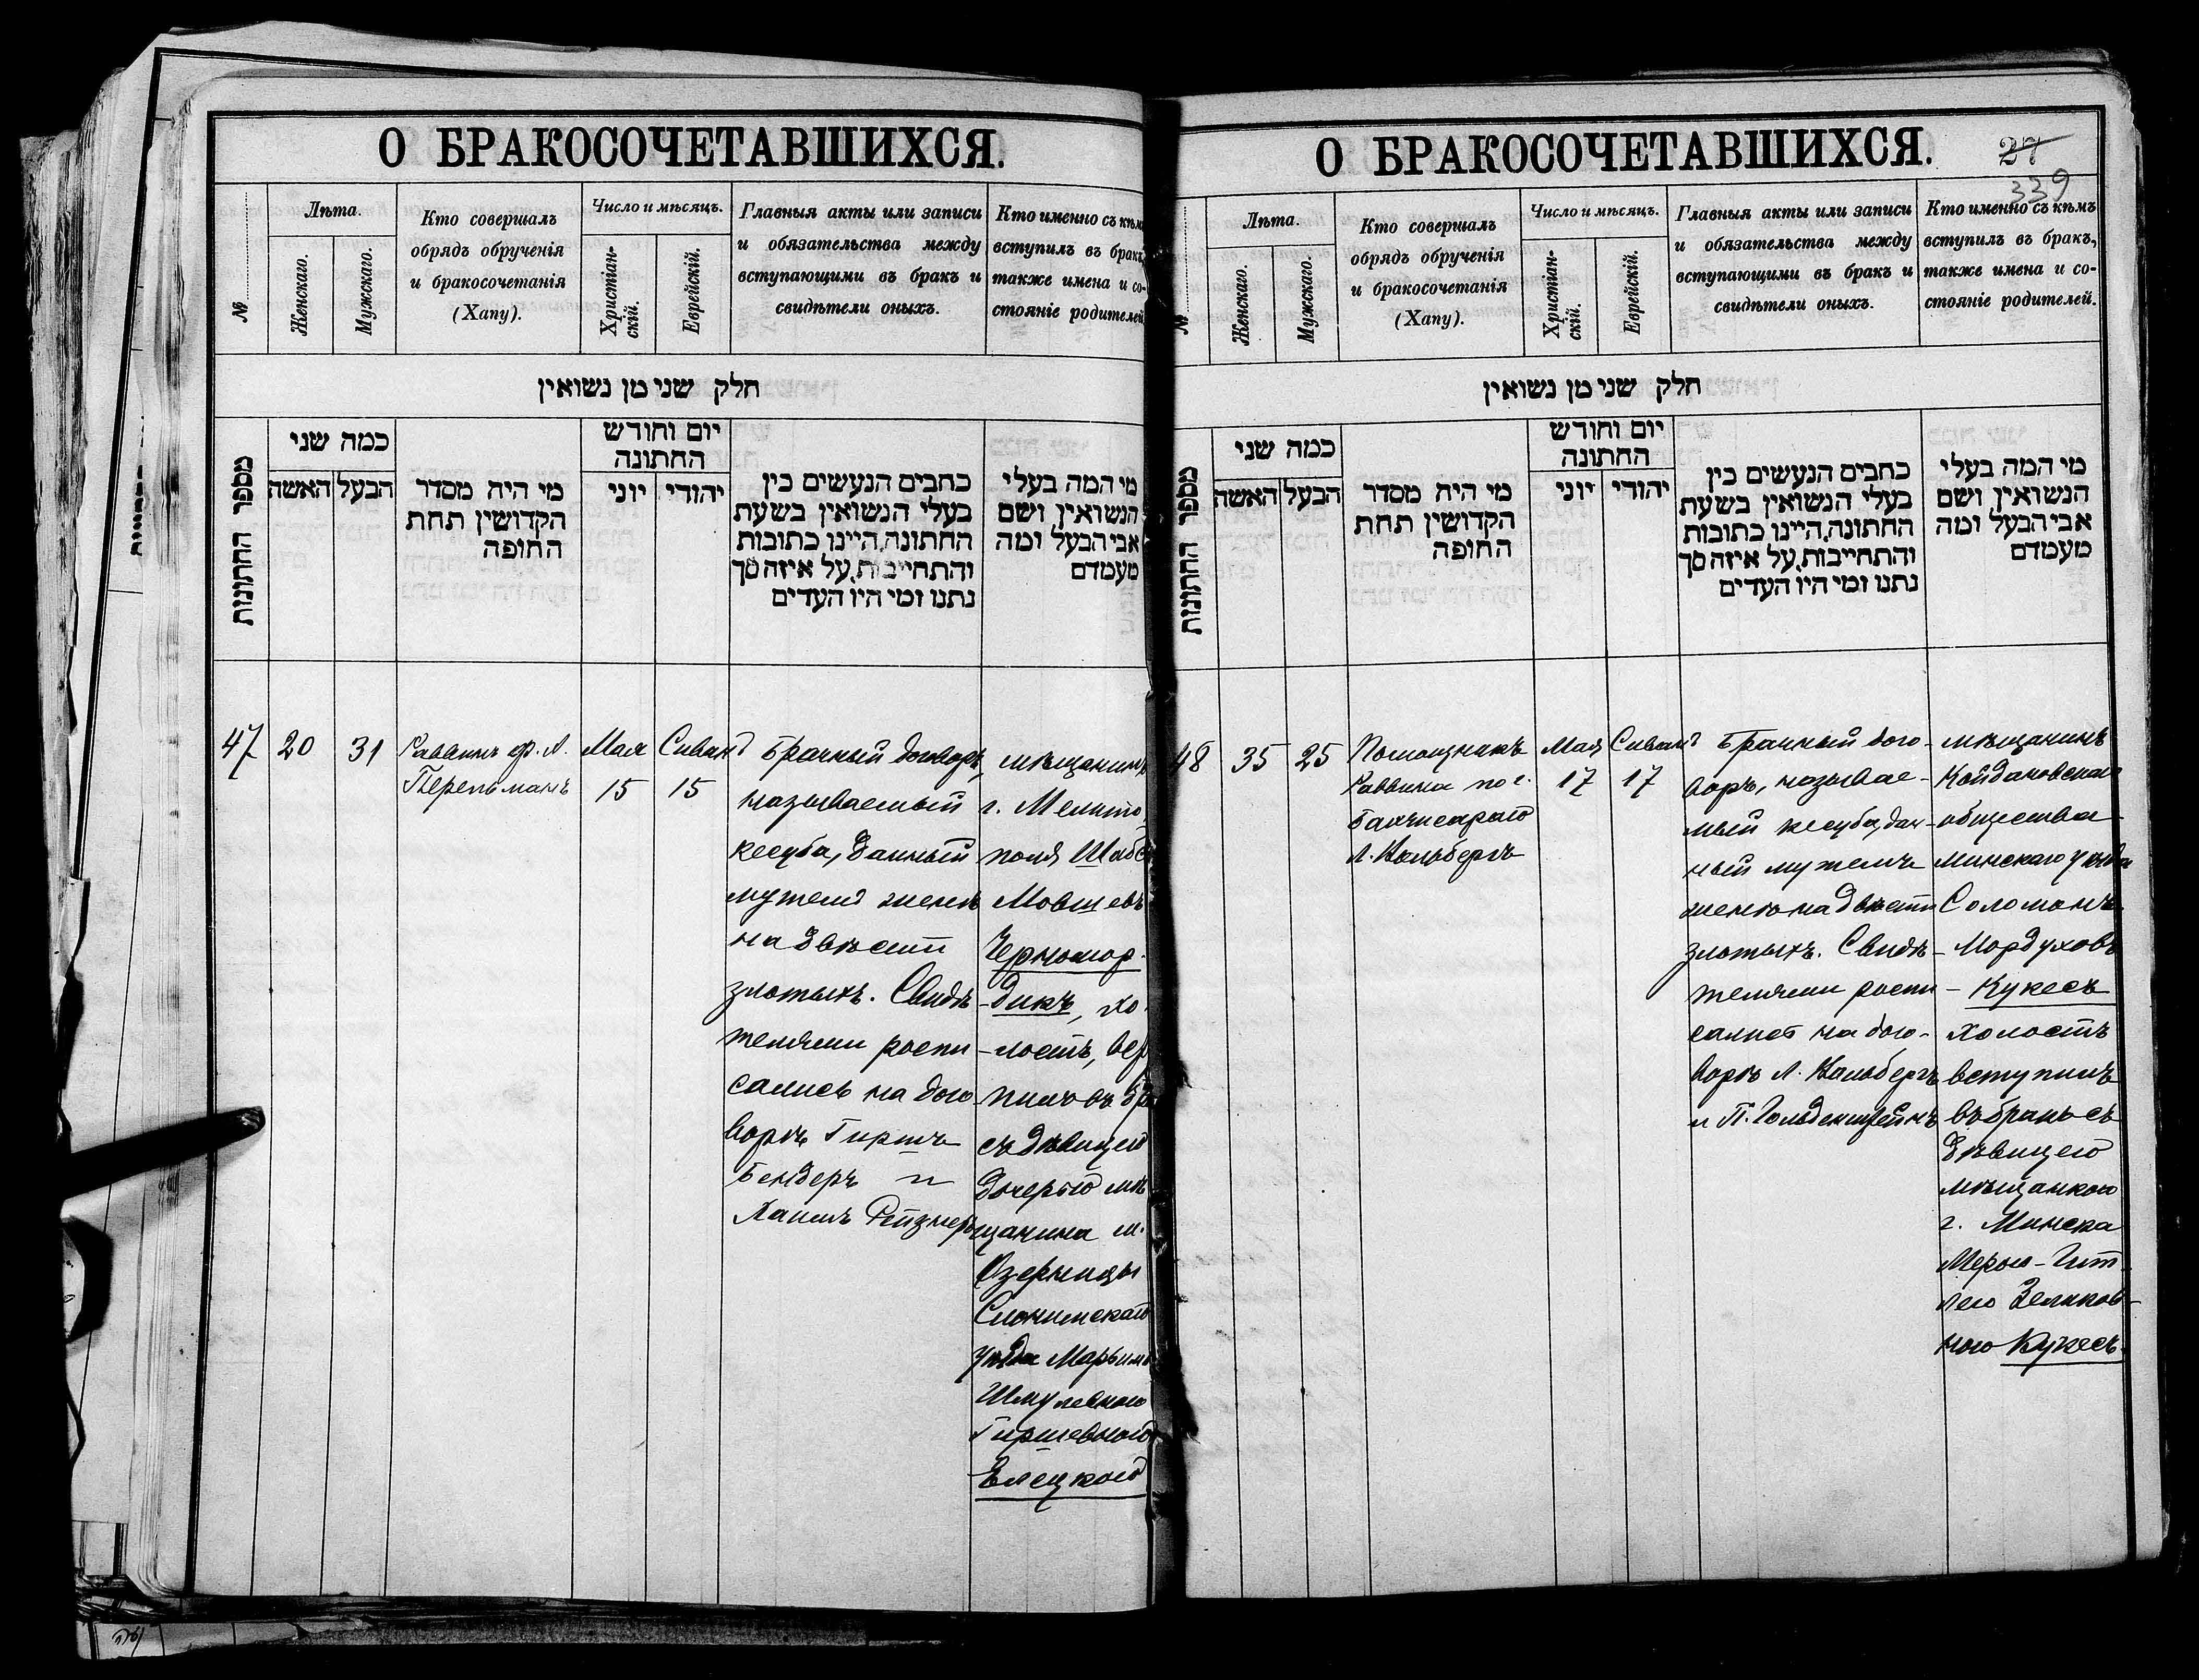 О БРАКОСОЧЕТАВШИХСЯ.
№
Лѣта.
Женскаго.
Мужскаго.
Кто совершалъ
обрядъ обрученія
и бракосочетанія
(Хапу).
Число и мѣсяцъ.
Христіан-
скій.
Еврейскій.
Главныя акты или записи
и обязательства между
вступающими въ бракъ и
свидѣтели оныхъ.
Кто именно съ кѣмъ
вступилъ въ бракъ,
также имена и со-
стояніе родителей
חלק שני מן נשואין
מספר החתונות
כמה שני
האשה
הבעל
מי היה מסדר
הקדושין תחת
החופה
יום וחודש
החתונה
יוני
יהודי
כתבים הנעשים בין
בעלי הנשואין בשעת
החתונה, היינו כתובות
והתחייבות, על איזה סך
נתנו ומי היו העדים
מי המה בעלי
הנשואין ושם
אבי הבעל ומה
מעמדם
47
20
31
Раввинъ ф. А.
Перельманъ
Мая
15
Сиванд
15
Брачный договоръ,
называемый
кесуба, данный
мужемъ женѣ
на двѣсти
злотыхъ. Свидѣ-
телями роспи-
сались на дого-
ворѣ Гиршъ
Бендеръ и
Хаимъ Рейзнеръ
мѣщанинъ
г. Мелито
поля Шабс
Мовшевъ
Черномор-
дикъ, хо-
лостъ, всту
пилъ въ бра
съ дѣвицею
дочерью мѣ
щанина м.
Озерницы
Слонимскаго
уѣзда Марьимъ
Шмулевною
Гиршевною
Елецкою
О БРАКОСОЧЕТАВШИХСЯ.
27
339
№
Лѣта.
Женскаго.
Мужскаго.
Кто совершалъ
обрядъ обрученія
и бракосочетанія
(Хапу).
Число и мѣсяцъ.
Христіан-
скій.
Еврейскій.
Главныя акты или записи
и обязательства между
вступающими въ бракъ и
свидѣтели оныхъ.
Кто именно съ кѣмъ
вступилъ въ бракъ,
также имена и со-
стояніе родителей.
חלק שני מן נשואין
מספר החתונות
כמה שני
האשה
הבעל
מי היה מסדר
הקדושין תחת
החופה
יום וחודש
החתונה
יוני
יהודי
כתבים הנעשים בין
בעלי הנשואין בשעת
החתונה, היינו כתובות
והתחייבות, על איזה סך
נתנו ומי היו העדים
מי המה בעלי
הנשואין ושם
אבי הבעל ומה
מעמדם
48
35
25
Помощникъ
Раввина по г.
Бахчисараю
Л. Вольбергъ
Мая
17
Сиванъ
17
Брачный дого-
воръ, называе-
мый кесуба, дан-
ный мужемъ
женѣ на двѣсти
злотыхъ. Свидѣ-
телями роспи-
сались на дого-
ворѣ Л. Вольбергъ
и П. Гольденштейнъ
мѣщанинъ
Койдановскаго
общества
Минскаго уѣзда
Соломонъ
Мордуховъ
Кукесъ
холостъ
вступилъ
въ бракъ съ
дѣвицею
мѣщанкою
г. Минска
Мерою-Гит-
лею Зеликов-
ною Кукесъ.